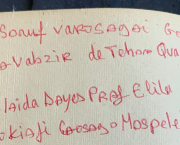 Sonuf VAROSAGAI Gr
AVabzir de Tehom Qua
laida Dayes PRof Elila
okiaji GAOSAGO Mospele